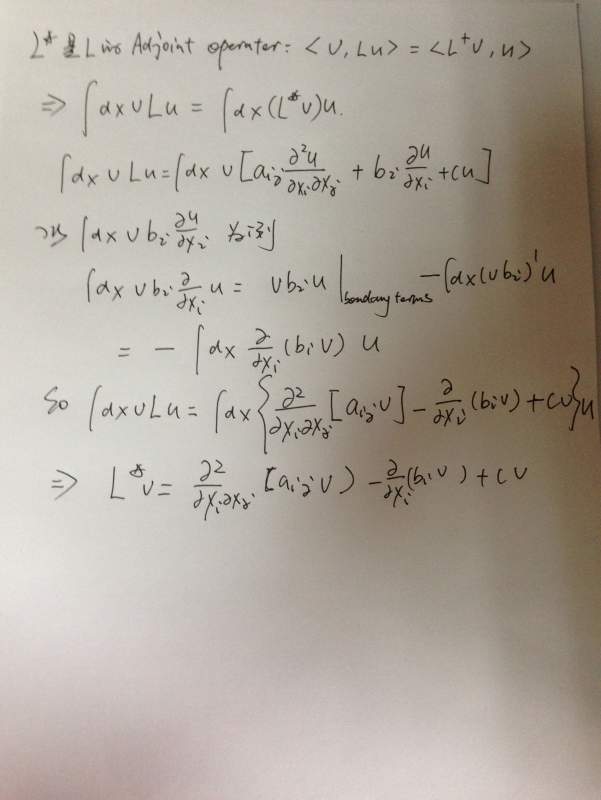 L* 是 L 的 Adjoint operater: <v, Lu> = <L⁺v, u>
⇒ ∫dx v L u = ∫dx (L*v) u.
∫dx v L u = ∫dx v [a_ij ∂²u/∂x_i∂x_j + b_i ∂u/∂x_i + cu]
以 ∫dx v b_i ∂u/∂x_i 为例
∫dx v b_i ∂/∂x_i u = v b_i u |_bondary terms − ∫dx (v b_i)' u
= − ∫dx ∂/∂x_i (b_i v) u
So ∫dx v L u = ∫dx { ∂²/∂x_i∂x_j [a_ij v] − ∂/∂x_i (b_i v) + cv } u
⇒ L*v = ∂²/∂x_i∂x_j [a_ij v) − ∂/∂x_i (b_i v) + cv